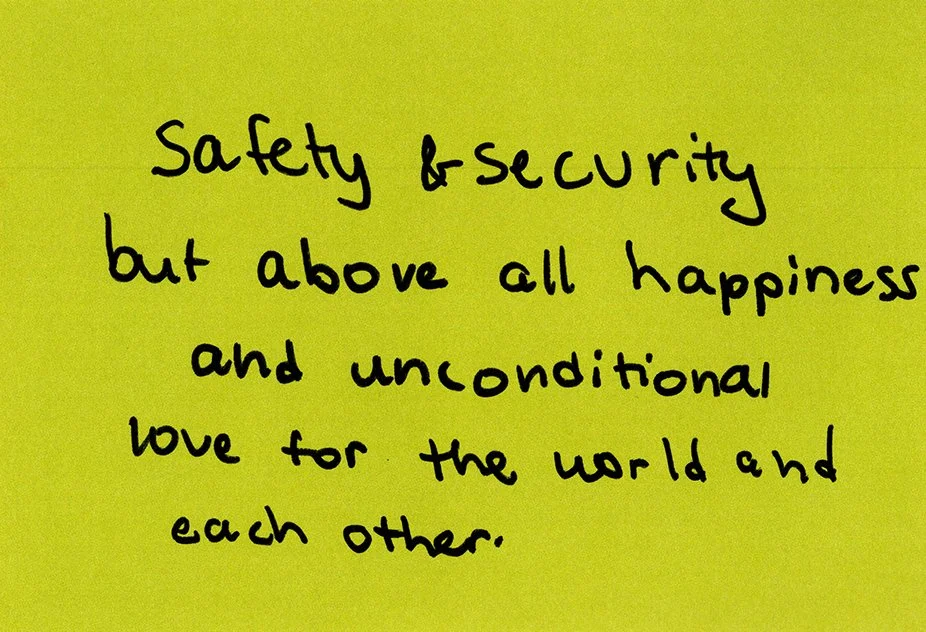 Safety & Security
but above all happiness
and unconditional
love for the world and
each other.